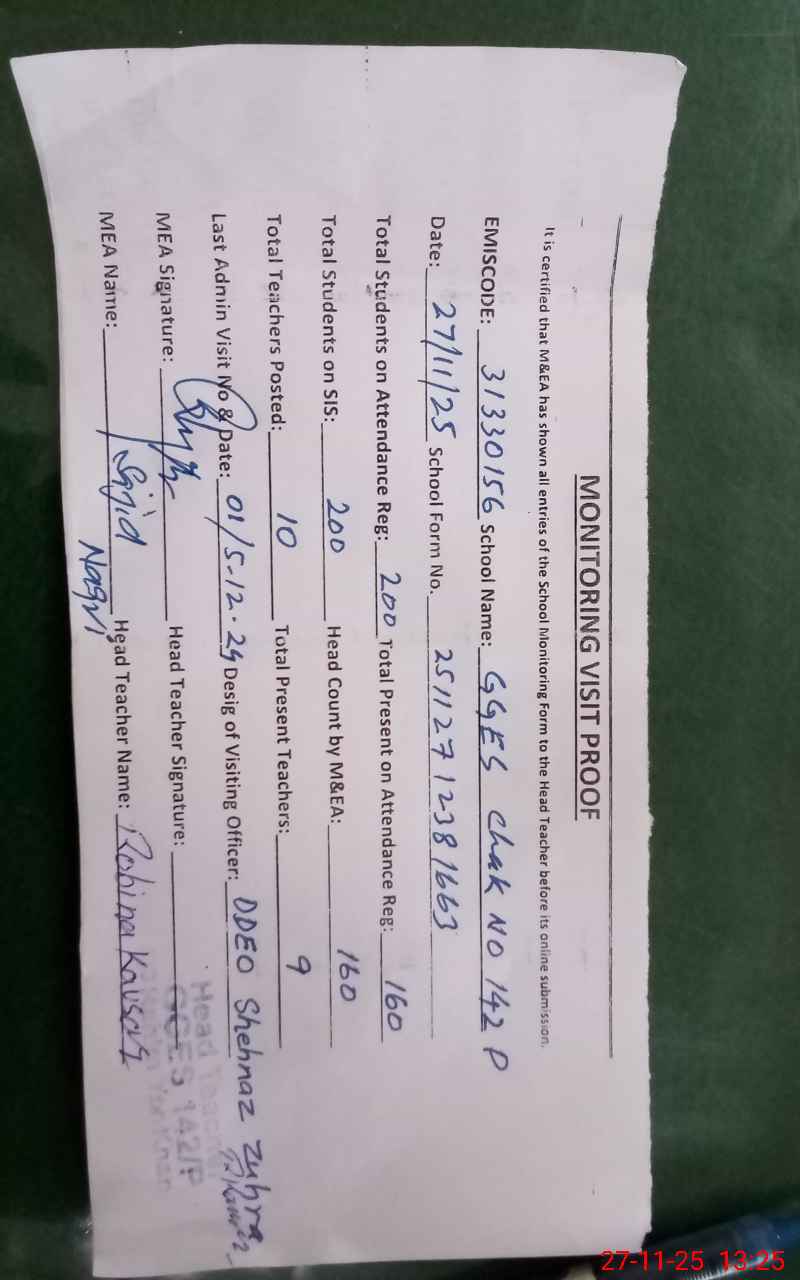 MONITORING VISIT PROOF
It is certified that M&EA has shown all entries of the School Monitoring Form to the Head Teacher before its online submission.
EMISCODE: 31330156 School Name: GGES Chak No 142 P
Date: 27/11/25 School Form No. 2511271238 1663
Total Students on Attendance Reg: 200 Total Present on Attendance Reg: 160
Total Students on SIS: 200 Head Count by M&EA: 160
Total Teachers Posted: 10 Total Present Teachers: 9
Last Admin Visit No & Date: 01/5-12-24 Desig of Visiting Officer: DDEO Shehnaz Zuhra
MEA Signature: Head Teacher Signature:
MEA Name: Sajid Naqvi Head Teacher Name: Robina Kausar
Head Teacher
GGES 142/P
27-11-25 13:25